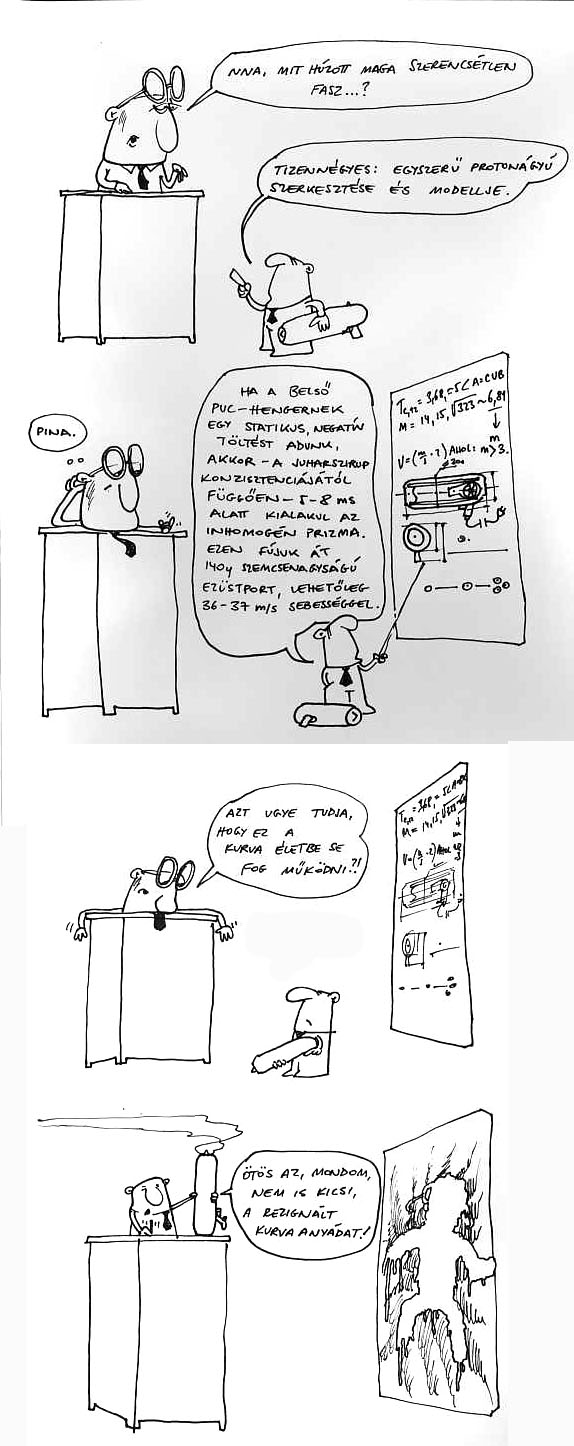 NNA, MIT HÚZOTT MAGA SZERENCSÉTLEN
FASZ...?
TIZENNÉGYES: EGYSZERŰ PROTONÁGYÚ
SZERKESZTÉSE ÉS MODELLJE.
PINA.
HA A BELSŐ
PVC-HENGERNEK
EGY STATIKUS, NEGATÍV
TÖLTÉST ADUNK,
AKKOR - A JUHARSZIRUP
KONZISZTENCIÁJÁTÓL
FÜGGŐEN - 5-8 MS
ALATT KIALAKUL AZ
INHOMOGÉN PRIZMA.
EZEN FÚJUK ÁT
140γ SZEMCSENAGYSÁGÚ
EZÜSTPORT, LEHETŐLEG
36-37 m/s SEBESSÉGGEL.
M = 14,15, √323 ~ 6,81
m
AHOL: m > 3.
AZT UGYE TUDJA,
HOGY EZ A
KURVA ÉLETBE SE
FOG MŰKÖDNI?!
ÖTÖS AZ, MONDOM,
NEM IS KICSI,
A REZIGNÁLT
KURVA ANYÁDAT!